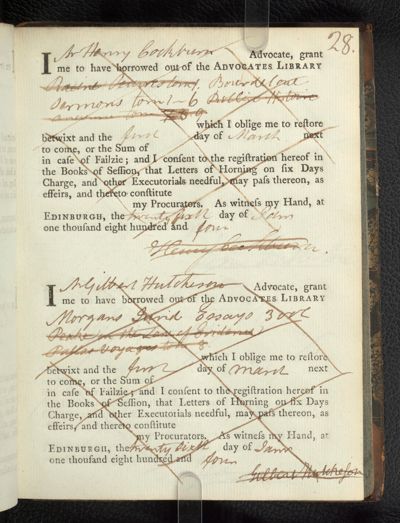 28.
I Mr Henry Cockburn Advocate, grant
me to have borrowed out of the ADVOCATES LIBRARY
Bourdaloue
Sermons tom 1-6
7 8 9
which I oblige me to reſtore
betwixt and the firſt day of March next
to come, or the Sum of
in caſe of Failzie; and I conſent to the regiſtration hereof in
the Books of Seſſion, that Letters of Horning on ſix Days
Charge, and other Executorials needful, may paſs thereon, as
effeirs, and thereto conſtitute
my Procurators. As witneſs my Hand, at
EDINBURGH, the day of Jany
one thouſand eight hundred and four
Henry Cockburn.
I Mr Gilbert Hutcheson Advocate, grant
me to have borrowed out of the ADVOCATES LIBRARY
Morgans Essays 3 vol
Peake on the Law of Evidence
Pallas Voyages
which I oblige me to reſtore
betwixt and the firſt day of March next
to come, or the Sum of
in caſe of Failzie; and I conſent to the regiſtration hereof in
the Books of Seſſion, that Letters of Horning on ſix Days
Charge, and other Executorials needful, may paſs thereon, as
effeirs, and thereto conſtitute
my Procurators. As witneſs my Hand, at
EDINBURGH, the twenty sixth day of Jany
one thouſand eight hundred and four
Gilbert Hutcheson